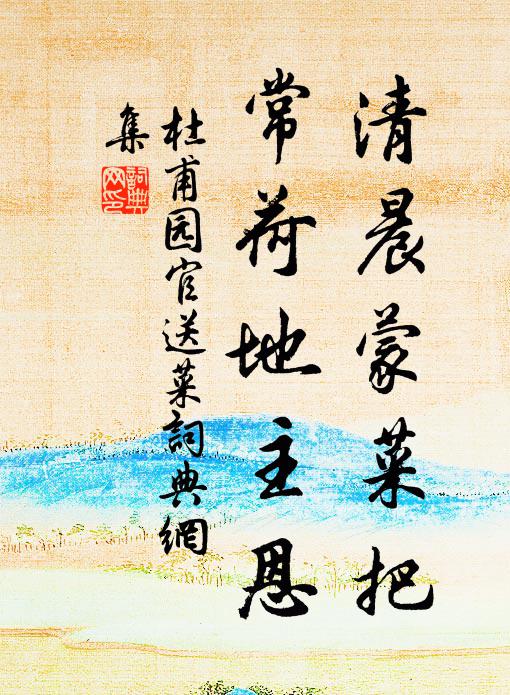 清晨蒙菜把
常荷地主恩
杜甫园官送菜詞典網
集
詞典
网印